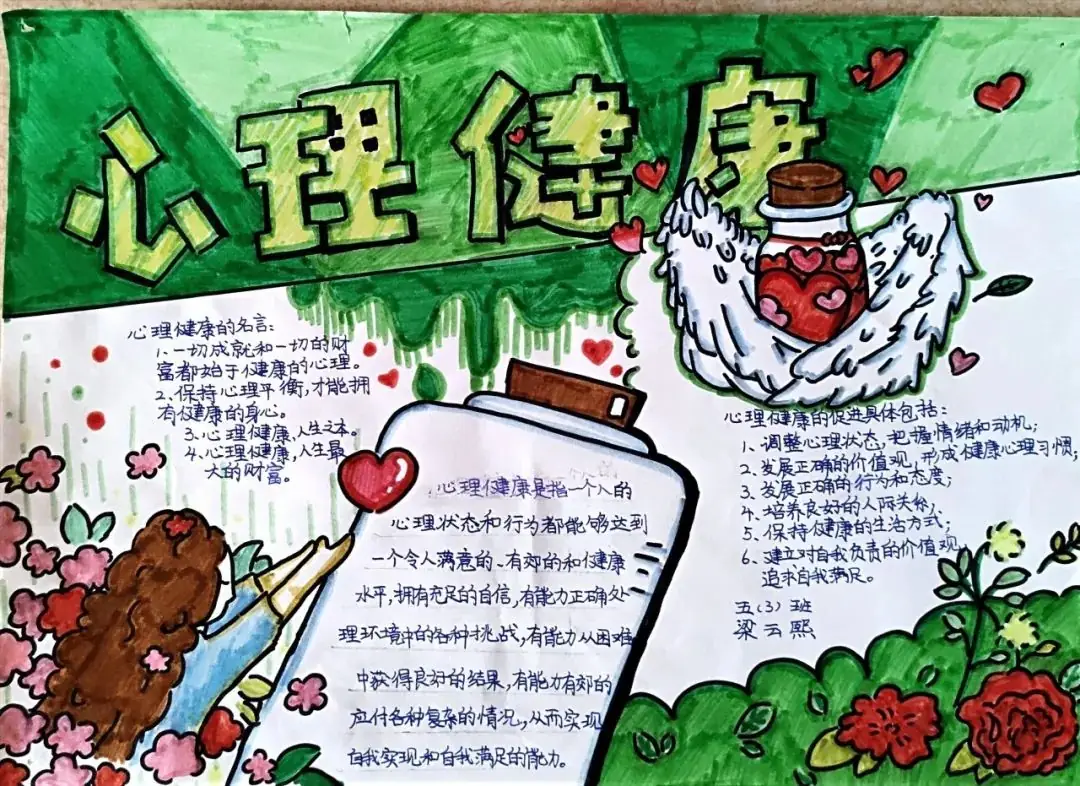 心理健康
心理健康的名言:
1、一切成就和一切的财
富都始于健康的心理。
2、保持心理平衡,才能拥
有健康的身心。
3、心理健康,人生之本。
4、心理健康,人生最
大的财富。
心理健康是指一个人的
心理状态和行为都能够达到
一个令人满意的、有效的和健康
水平,拥有充足的自信,有能力正确处
理环境中的各种挑战,有能力从困难
中获得良好的结果,有能力有效的
应付各种复杂的情况,从而实现
自我实现和自我满足的能力。
心理健康的促进具体包括:
1、调整心理状态,把握情绪和动机;
2、发展正确的价值观,形成健康心理习惯;
3、发展正确的行为和态度;
4、培养良好的人际关系;
5、保持健康的生活方式;
6、建立对自我负责的价值观,
追求自我满足。
五(3)班
梁云熙